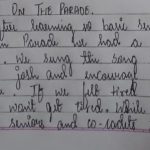 ON THE PARADE.
learning so basic
Parade we had a
. We sung the song
josh and encourag
. If we felt tired
want get tired. While
seniors and co-cadets